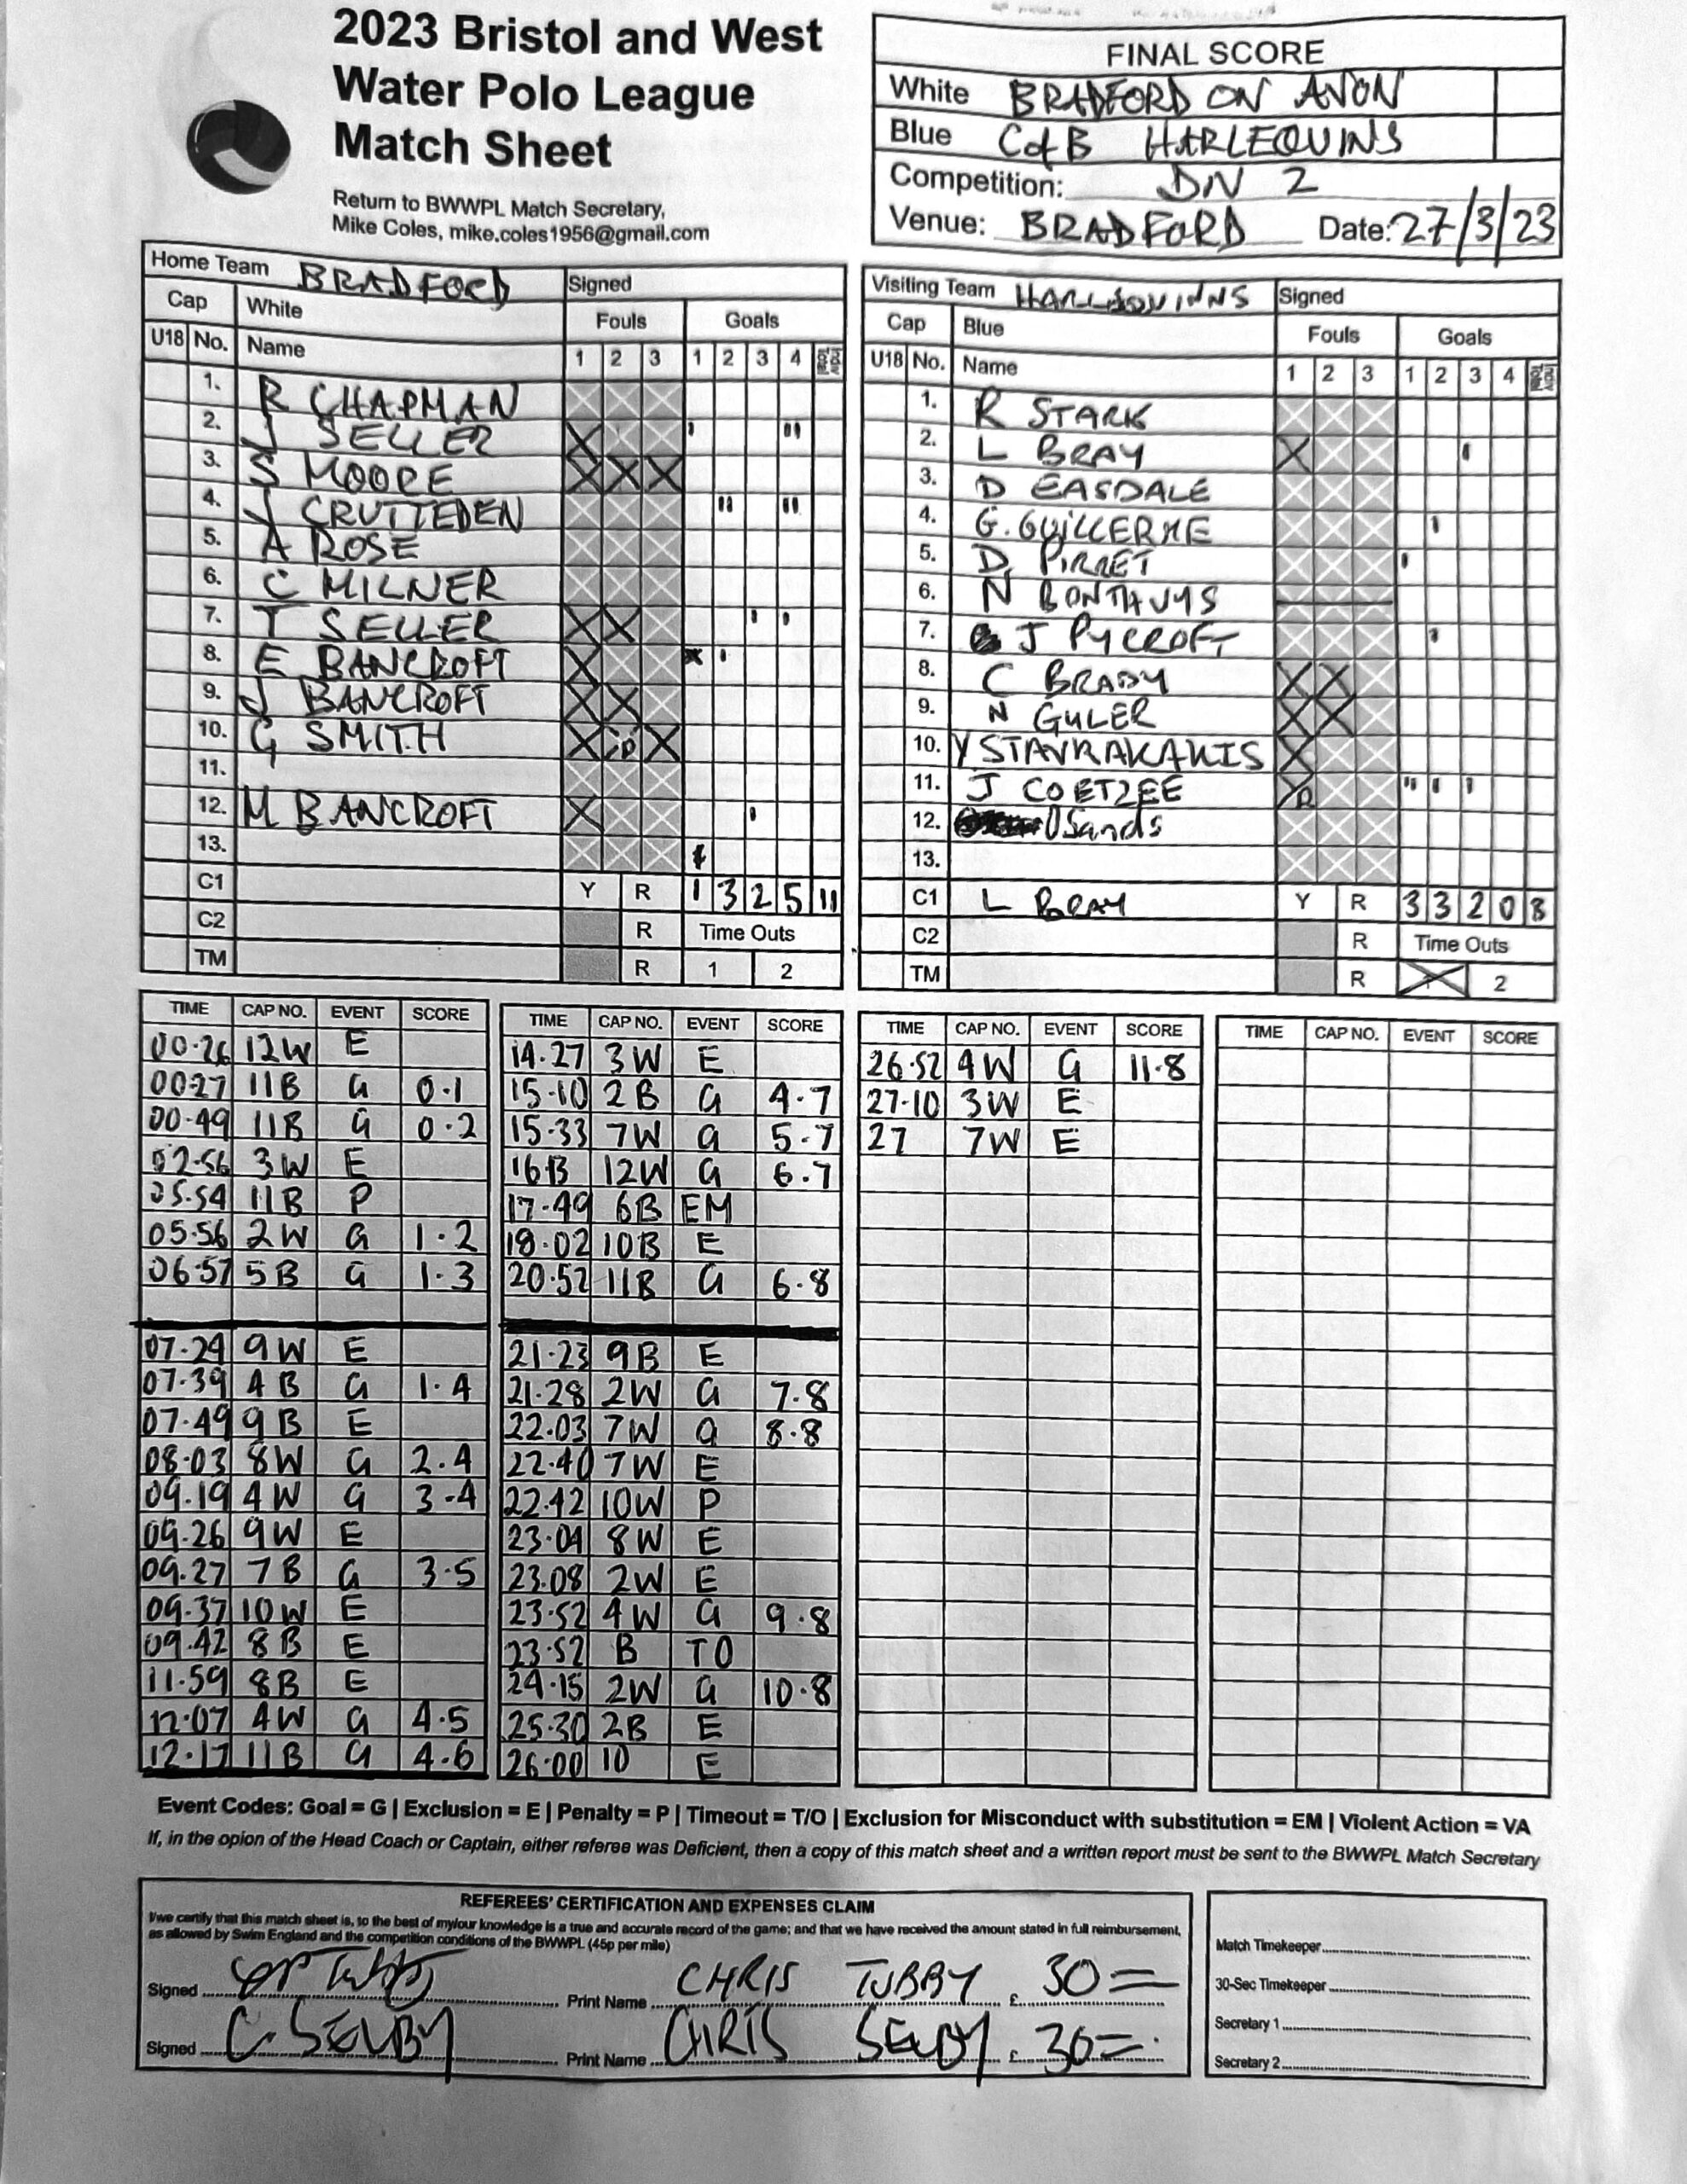 2023 Bristol and West
Water Polo League
Match Sheet
Return to BWWPL Match Secretary,
Mike Coles, mike.coles1956@gmail.com
FINAL SCORE
White BRADFORD ON AVON
Blue CofB HARLEQUINS
Competition: DIV 2
Venue: BRADFORD Date: 27/3/23
Home Team BRADFORD Signed
Cap White Fouls Goals
U18 No. Name 1 2 3 1 2 3 4
1. R CHAPMAN
2. J SELLER X ' "
3. S MOORE X X X
4. J CRUTTEDEN " "
5. A ROSE
6. C MILNER
7. T SELLER X X ' '
8. E BANCROFT X '
9. J BANCROFT X X
10. G SMITH X P X
11.
12. M BANCROFT X '
13.
C1 Y R 1 3 2 5 11
C2 R Time Outs
TM R 1 2
Visiting Team HARLEQUINNS Signed
Cap Blue Fouls Goals
U18 No. Name 1 2 3 1 2 3 4
1. R STARK
2. L BRAY X '
3. D EASDALE
4. G. GUILLERME '
5. D PIRRET '
6. N BONTHUYS
7. J PYCROFT '
8. C BRADY X X
9. N GULER X X
10. Y STAVRAKAKIS X
11. J COETZEE P " ' '
12. O Sands
13.
C1 L BRAY Y R 3 3 2 0 8
C2 R Time Outs
TM R 1 2
TIME CAP NO. EVENT SCORE
00.26 12W E
00.27 11B G 0.1
00.49 11B G 0.2
02.56 3W E
05.54 11B P
05.56 2W G 1.2
06.57 5B G 1.3
07.29 9W E
07.39 4B G 1.4
07.49 9B E
08.03 8W G 2.4
09.19 4W G 3-4
09.26 9W E
09.27 7B G 3.5
09.37 10W E
09.42 8B E
11.59 8B E
12.07 4W G 4.5
12.17 11B G 4.6
TIME CAP NO. EVENT SCORE
14.27 3W E
15.10 2B G 4.7
15.33 7W G 5.7
1613 12W G 6.7
17.49 6B EM
18.02 10B E
20.52 11B G 6.8
21.23 9B E
21.28 2W G 7.8
22.03 7W G 8.8
22.40 7W E
22.42 10W P
23.04 8W E
23.08 2W E
23.52 4W G 9.8
23.52 B TO
24.15 2W G 10.8
25.30 2B E
26.00 10 E
TIME CAP NO. EVENT SCORE
26.52 4W G 11.8
27.10 3W E
27 7W E
TIME CAP NO. EVENT SCORE
Event Codes: Goal = G | Exclusion = E | Penalty = P | Timeout = T/O | Exclusion for Misconduct with substitution = EM | Violent Action = VA
If, in the opion of the Head Coach or Captain, either referee was Deficient, then a copy of this match sheet and a written report must be sent to the BWWPL Match Secretary
REFEREES' CERTIFICATION AND EXPENSES CLAIM
I/we certify that this match sheet is, to the best of my/our knowledge is a true and accurate record of the game; and that we have received the amount stated in full reimbursement,
as allowed by Swim England and the competition conditions of the BWWPL (45p per mile)
Signed Print Name CHRIS TUBBY £ 30=
Signed C. SELBY Print Name CHRIS SELBY £ 30=
Match Timekeeper
30-Sec Timekeeper
Secretary 1
Secretary 2